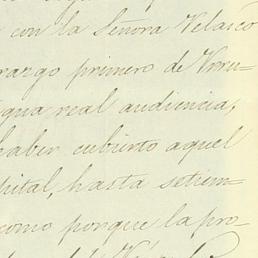 con la Señora Velasco
razgo primero de Vrru=
gua real audiencia,
haber cubierto aquel
pital, hasta setiem=
como porque la pro=